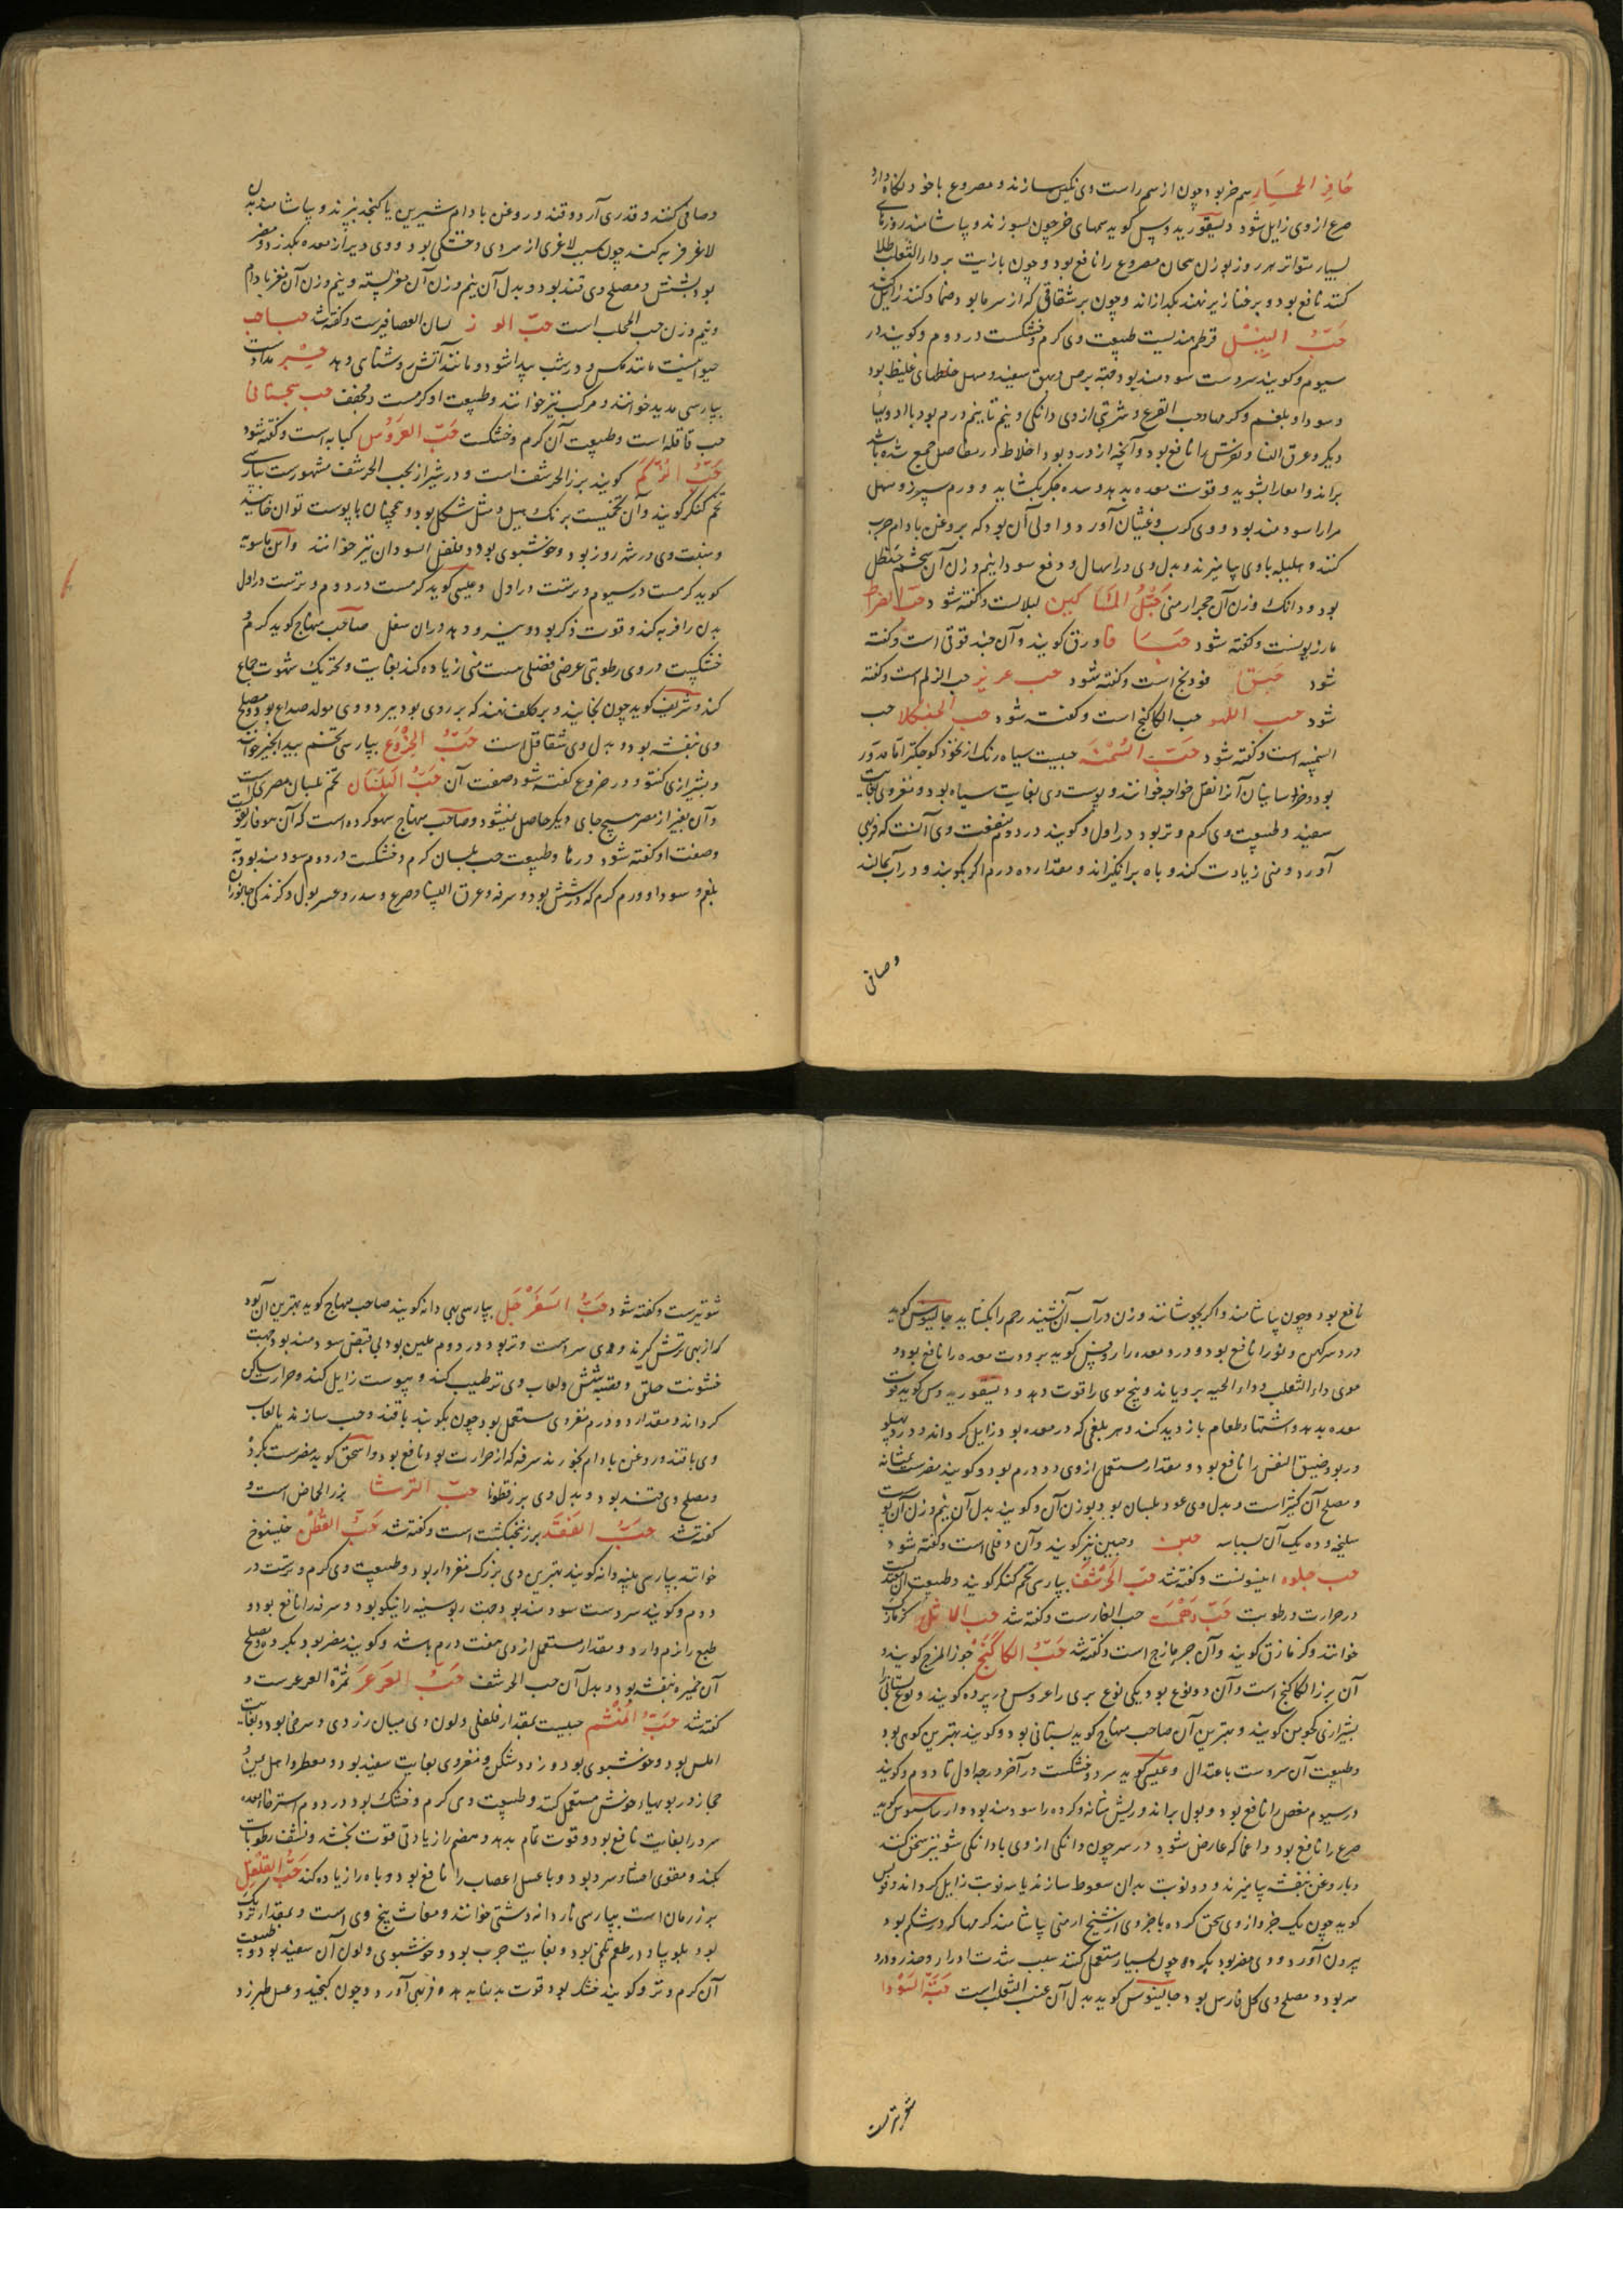 حَافِرُ الحِمَارِ سم خر بود چون از سم راست وی نکین سازند و مصروع با خود نکاه دارد
صرع از وی زایل شود دیسقوریدوس کوید سمهای خر چون بسوزند و بیاشامند روزهای
بسیار متواتر هر روز بوزن سحان مصروع را نافع بود و چون بازیت بر داء الثعلب طلا
کنند نافع بود و بر خنازیر نهند بکدازاند و چون بر شقاقی که از سرما بود ضماد کنند زایل کند
حَبُّ النِیْل قرطم هندیست طبیعت وی کرم و خشکست در دوم و کویند در
سیوم و کویند سردست سودمند بود جهة برص و بهق سفید و مسهل خلطهای غلیظ بود
و سودا و بلغم و کرمها و حب القرع و شربتی از وی دانکی و نیم تا نیم درم بود با ادویهای
دیکر و عرق النسا و نقرس را نافع بود و آنچه از درد بود اخلاط در مفاصل جمع شده باشد
براند و امعا را بشوید و قوت معده بدهد و سده جکر بکشاید و ورم سپرز و مسهل
مرارا سودمند بود و وی کرب و غثیان آورد و اولی آن بود که بروغن بادام چرب
کنند و هلیله با وی بیامیزند و بدل وی در اسهال و دفع سودا نیم وزن آن شحم حنظل
بود و دانک وزن آن حجر ارمنی حَبْلُ المَسَاکین لبلابست و کفته شود حب الضراط
مازریونست و کفته شود حَبَسَا فاورزق کویند و آن جند قوقی است و کفته
شود حَبَق فودنج است و کفته شود حب عریز حب الزلم است و کفته
شود حب اللهو حب الکاکنج است و کفته شود حب الحنکلا حب
السمنه است و کفته شود حَبّ السُمْنَه حبیست سیاه رنک از نخود کوچکتر اما مدور
بود و خراسانیان آنرا نقل خواجه خوانند و پوست وی بغایت سیاه بود و مغز وی بغایت
سفید و طبیعت وی کرم و تر بود در اول و کویند در دوم منفعت وی آنست که فربهی
آورد و منی زیادت کند و باه برانکیزاند و مقدار ده درم اکر بکوبند و در آب بمالند
وصافی
وصافی کنند و قدری آرد و قند و روغن بادام شیرین یا کنجد بپزند و بیاشامند بدن
لاغر فربه کند چون سبب لاغری از سردی و خشکی بود و وی دیر از معده بکذرد و مضر
بود بشش و مصلح وی قند بود و بدل آن نیم وزن آن مغز پسته و نیم وزن آن مغز بادام
و نیم وزن حب المحلب است حبّ الو ز لسان العصافیرست و کفته شد حباحب
حیوانیست مانند مکس و در شب پیدا شود و مانند آتش روشنای دهد حِبْر مدادست
بپارسی مدید خوانند و مرکب نیز خوانند و طبیعت او کرمست و مجفف حب سجستانی
حب قاقله است و طبیعت آن کرم و خشکست حَبّ العَرُوْس کبابه است و کفته شود
حَبّ الزَلَم کویند بزر الحرشف است و در شیراز بحب الحرشف مشهورست بپارسی
تخم کنکر کویند و آن تخمیست برنک هیل و مثل شکل بود و همچنان با پوست توان خایید
و منبت وی در شهرزور بود و خوشبوی بود و فلفل السودان نیز خوانند و ابن ماسویه
کوید کرمست در سیوم و ترست در اول و عیسی کوید کرمست در دوم و ترست در اول
بدن را فربه کند و قوت ذکر بود و نیرو دهد در آن سغل صاحب منهاج کوید کرم و
خشکیست در وی رطوبتی عرضی فضلی هست منی زیاده کند بغایت و تحریک شهوت جماع
کند و شریف کوید چون بخایند و بر کلف نهند که بر روی بود ببرد و وی مولد صداع بود و مصلح
وی بنفشه بود و بدل وی شقاقل است حَبُّ الخِرْوَع بپارسی تخم بیدانجیر خوانند
و بشیرازی کنتو و در خروع کفته شود صفت آن حَبُّ البَلَسَان تخم بلسان مصریست
و آن بغیر از مصر هیچ جای دیکر حاصل نمیشود و صاحب منهاج سهو کرده است که آن هوفاریقون است
وصفت او کفته شود درها و طبیعت حب بلسان کرم و خشکست در دوم سودمند بود جهة
بلغم و سودا و ورم کرم که در شش بود و سرفه و عرق النسا و صرع و سدر و عسر بول و کزندکی جانوران
نافع بود و چون بیاشامند و اکر بجوشانند و زن در آب آن نشیند رحم را بکشاید جالینوس کوید
درد سر کهن و نو را نافع بود و درد معده را روفس کوید برودت معده را نافع بود و
موی داء الثعلب و داء الحیه برویاند و بیخ موی را قوت دهد و دیسقوریدوس کوید قوت
معده بدهد و اشتهاء طعام بازدید کند و هر بلغمی که در معده بود زایل کرداند و درد پهلو
و ربو و ضیق النفس را نافع بود و مقدار مستعمل از وی دو درم بود و کویند مضرست بمثانه
و مصلح آن کثیراست و بدل وی عود بلسان بود بوزن آن و کویند بدل آن نیم وزن آن پوست
سلیخه و ده یک آن بسباسه حبن و حبین نیز کویند و آن دفلی است و کفته شود
حب حلوه انیسونست و کفته شد حَبّ الحَرْشَف بپارسی تخم کنکر کویند و طبیعت آن معتدلست
در حرارت و رطوبت حَبّ دَهْمَسْت حب الغارست و کفته شد حب الاثل کزمازک
خوانند و کزمازق کویند و آن جزمازج است و کفته شد حَبُّ الکَاکَنَجْ جوز المرج کویند و
آن بزر الکاکنج است و آن دو نوع بود یکی نوع بری را عروس در پرده کویند و نوع بستانی را
بشیرازی کجومن کویند و بهترین آن صاحب منهاج کوید بستانی بود و کویند بهترین کوهی بود
و طبیعت آن سردست باعتدال و عیسی کوید سرد و خشکست در آخر درجه اول تا دوم و کویند
در سیوم مغص را نافع بود و بول براند و ریش مثانه و کرده را سودمند بود و ارساسیوس کوید
صرع را نافع بود و اغما که عارض شود در سر چون دانکی از وی با دانکی شونیز سحق کنند
و با روغن بنفشه بیامیزند و دو نوبت بدان سعوط سازند یا سه نوبت زایل کرداند و فولس
کوید چون یک جزو از وی سحق کرده با جزوی از شیخ ارمنی بیاشامند کرمها که در شکم بود
بیرون آورد و وی مضر بود بکرده چون بسیار مستعمل کنند سبب شدت ادرار و مخدر و دارد
سر بود و مصلح وی کل فارس بود جالینوس کوید بدل آن عنب الثعلب است حَبَّةُ السَوْدَا
شونیزست
شونیزست و کفته شود حَبُّ السَفَرْجَل بپارسی بهی دانه کویند صاحب منهاج کوید بهترین آن بود
که از بهی ترش کیرند و وی سردست و تر بود در دوم ملین بود بی قبض سودمند بود جهت
خشونت حلق و قصبه شش و لعاب وی ترطیب کند و یبوست زایل کند و حرارت ساکن
کرداند و مقدار دو درم مغز وی مستعمل بود چون بکوبند با قند و حب سازند یا لعاب
وی با قند و روغن بادام بخورند سرفه که از حرارت بود نافع بود و اسحق کوید مضرست بکرده
و مصلح وی قند بود و بدل وی بزرقطونا حبّ الترشا بزر الحماض است و
کفته شد حَبُّ الفَقَد بزر بنجنکشت است و کفته شد حَبُّ القُطْن خیسفوخ
خوانند بپارسی پنبه دانه کویند بهترین وی بزرک مغزدار بود و طبیعت وی کرم و ترست در
دوم و کویند سردست سودمند بود جهت ربو سینه را نیکو بود و سرفه را نافع بود و
طبع را نرم دارد و مقدار مستعمل از وی هفت درم باشد و کویند مضر بود بکرده و مصلح
آن خمیره بنفشه بود و بدل آن حب الحرشف حَبُّ العَرْعَر ثمرة العرعرست و
کفته شد حَبُّ المُنْشَم حبیست بمقدار فلفلی و لون وی میان زردی و سرخی بود و بغایت
املس بود و خوشبوی بود و زود شکن و مغز وی بغایت سفید بود و معطر و اهل یمن و
حجاز در بوهاء خوش مستعمل کنند و طبیعت وی کرم و خشک بود در دوم استرخاء معده
سرد را بغایت نافع بود و قوت تمام بدهد و هضم را زیادتی قوت بخشد و نشف رطوبات
بکند و مقوی احشاء سرد بود و با عسل اعصاب را نافع بود و باه را زیاده کند حَبُّ القُلْقُل
بزر رمان است بپارسی ناردانه دشتی خوانند و مغاث بیخ وی است و بمقدار نزدیک
بود بلوبیا و در طعم تلخی بود و بغایت چرب بود و خوشبوی و لون آن سفید بود و طبیعت
آن کرم و تر و کویند خشک بود قوت بدنها بدهد و فربهی آورد و چون کنجید و عسل طبرزد